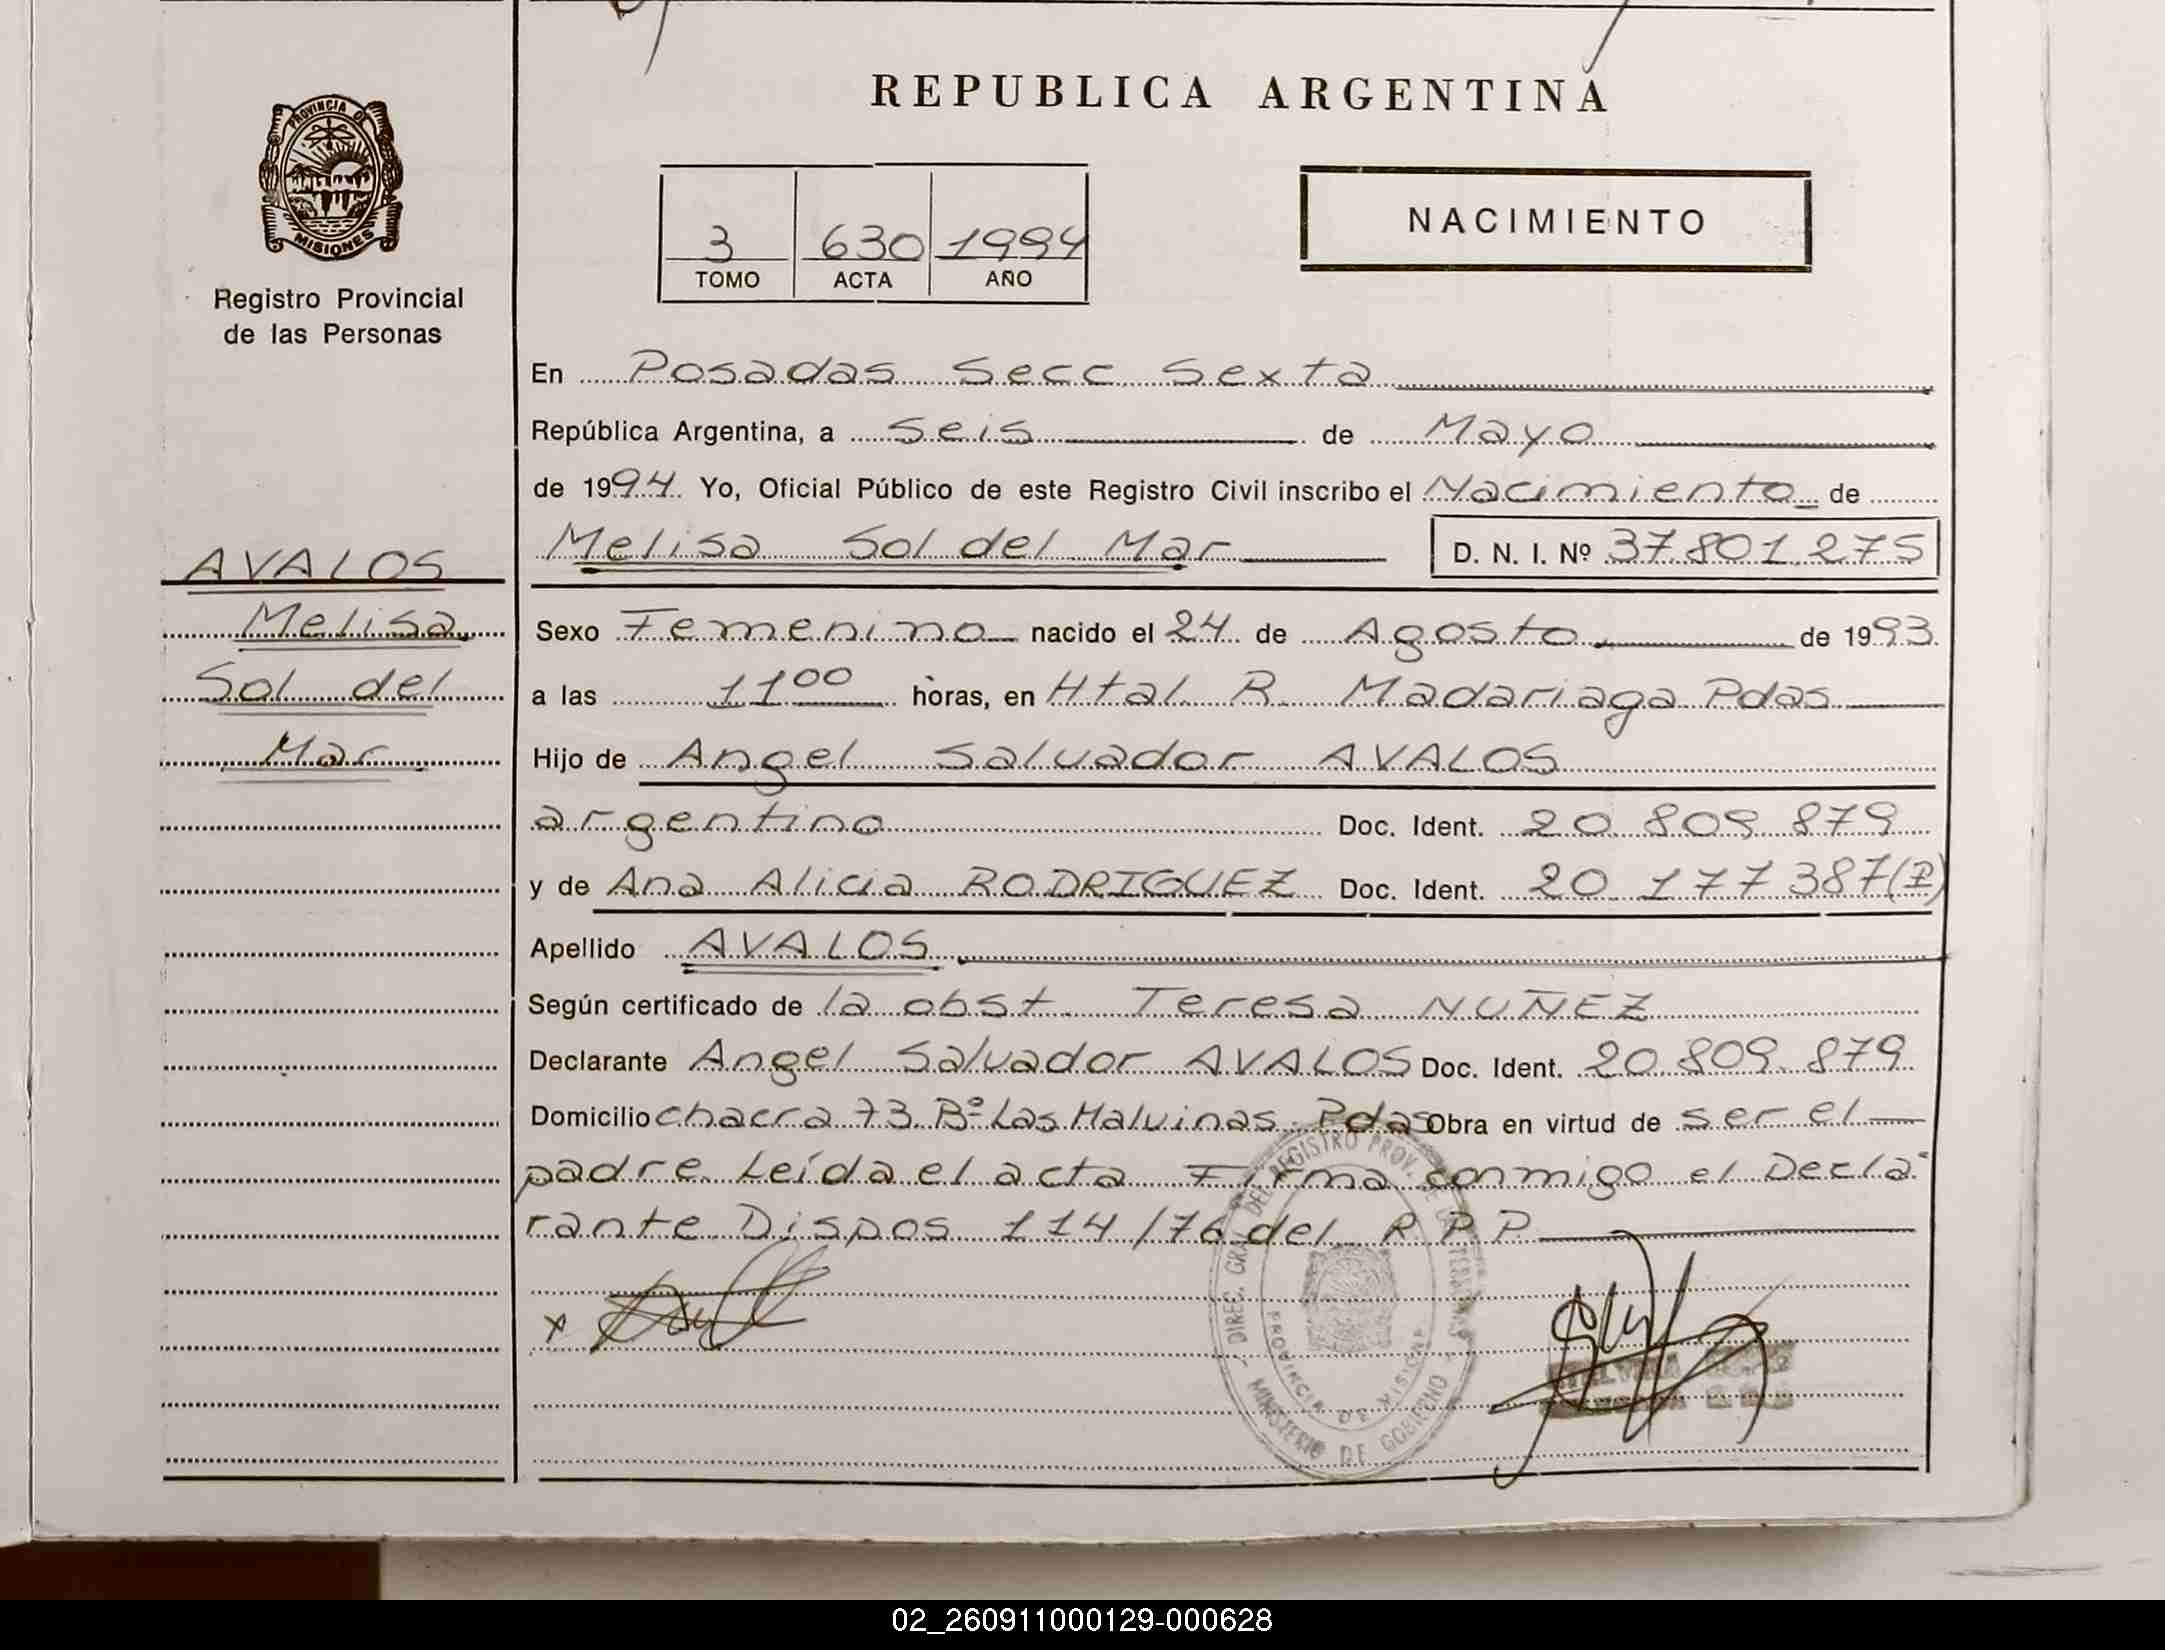 REPUBLICA ARGENTINA
PROVINCIA DE
MISIONES
Registro Provincial
de las Personas
3 630 1994
TOMO ACTA AÑO
NACIMIENTO
En Posadas Secc Sexta
República Argentina, a Seis de Mayo
de 1994. Yo, Oficial Público de este Registro Civil inscribo el Nacimiento de
Melisa Sol del Mar D. N. I. Nº 37.801.275
AVALOS
Melisa
Sol del
Mar
Sexo Femenino nacido el 24 de Agosto de 1993
a las 11 00 horas, en Htal R. Madariaga Pdas
Hijo de Angel Salvador AVALOS
argentino Doc. Ident. 20 809 879
y de Ana Alicia RODRIGUEZ Doc. Ident. 20 177 387(P)
Apellido AVALOS
Según certificado de la obst. Teresa NUÑEZ
Declarante Angel Salvador AVALOS Doc. Ident. 20 809 879
Domicilio chacra 73 Bº Las Malvinas Pdas Obra en virtud de ser el
padre. Leída el acta Firma conmigo el Decla-
rante Dispos 114/76 del R. P. P.
x
DIREC. GRAL. DEL REGISTRO PROV. DE LAS PERSONAS
PROVINCIA DE MISIONES
MINISTERIO DE GOBIERNO
02_260911000129-000628